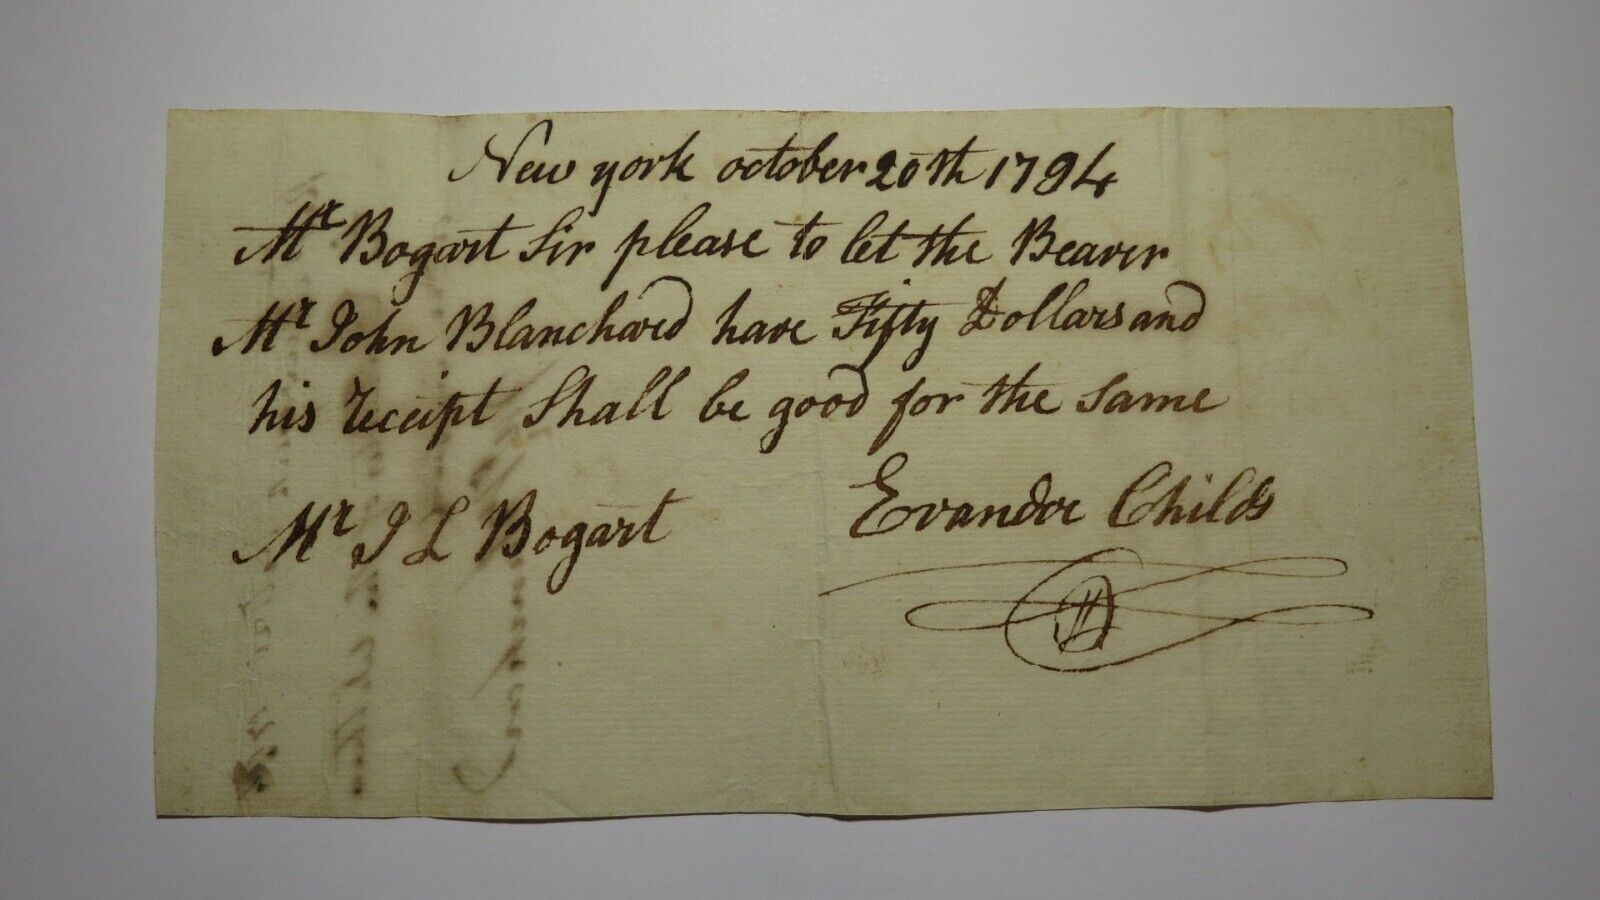 New york october 20th 1794
Mr Bogart Sir please to let the Bearer
Mr John Blanchard have Fifty Dollars and
his receipt Shall be good for the same
Evander Childs
Mr I L Bogart